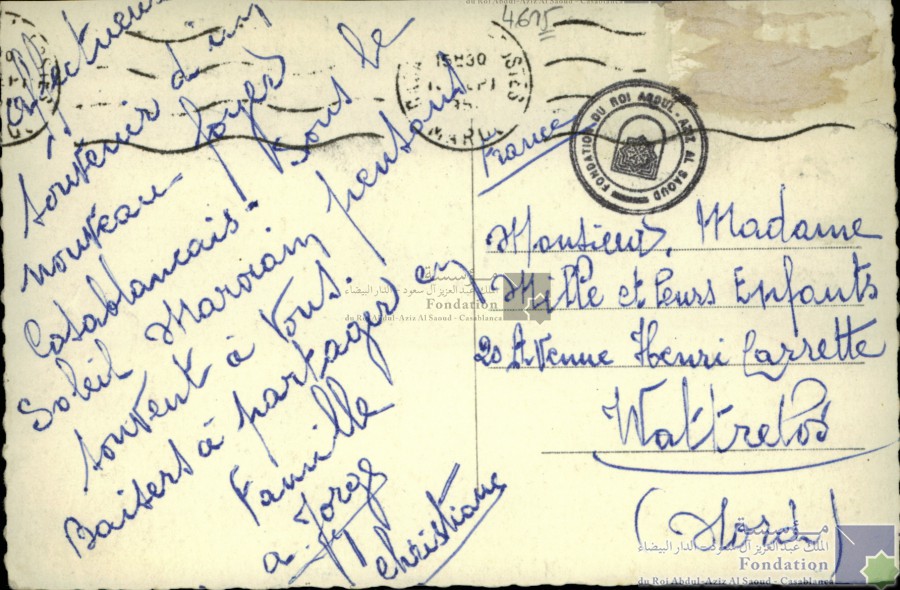 4615
15H30
POSTES
MAROC
FONDATION DU ROI ABDUL-AZIZ AL SAOUD
affectueux
souvenir d'un
nouveau foyer
Casablancais - sous le
Soleil Marocain pensons
souvent à vous.
Baisers à partager en
Famille
Christiane
France
Monsieur, Madame
Mille et leurs Enfants
20 Avenue Henri Carrette
Wattrelos
(Nord)
مؤسسة
الملك عبد العزيز آل سعود - الدار البيضاء
Fondation
du Roi Abdul-Aziz Al Saoud - Casablanca
مؤسسة
الملك عبد العزيز آل سعود - الدار البيضاء
Fondation
du Roi Abdul-Aziz Al Saoud - Casablanca
du Roi Abdul-Aziz Al Saoud - Casablanca